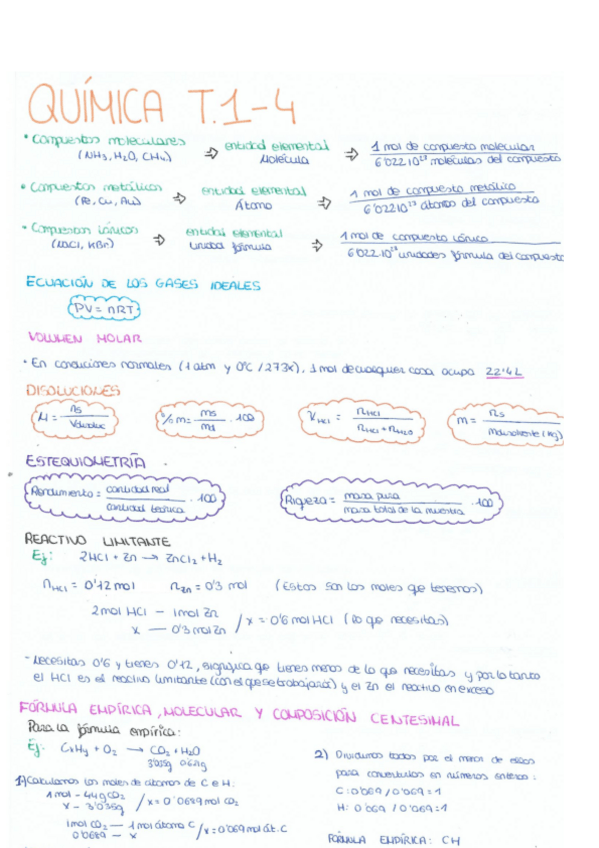 QUÍMICA T.1-4
• Compuestos moleculares ⇒ entidad elemental ⇒ 1 mol de compuesto molecular
(NH3, H2O, CH4) Molécula 6'022·10²³ moléculas del compuesto
• Compuestos metálicos ⇒ entidad elemental ⇒ 1 mol de compuesto metálico
(Fe, Cu, Au) Átomo 6'022·10²³ átomos del compuesto
• Compuestos iónicos ⇒ entidad elemental ⇒ 1 mol de compuesto iónico
(NaCl, KBr) unidad fórmula 6'022·10²³ unidades fórmula del compuesto
ECUACIÓN DE LOS GASES IDEALES
PV = nRT
VOLUMEN MOLAR
• En condiciones normales (1 atm y 0ºC / 273K), 1 mol de cualquier cosa ocupa 22'4L
DISOLUCIONES
M = ns / Vdisoluc % m = ms / md · 100 χHCl = nHCl / nHCl + nH2O m = ns / mdisolvente (kg)
ESTEQUIOMETRÍA
Rendimiento = cantidad real / cantidad teórica · 100 Riqueza = masa pura / masa total de la muestra · 100
REACTIVO LIMITANTE
Ej: 2HCl + Zn → ZnCl2 + H2
nHCl = 0'12 mol nZn = 0'3 mol (Estos son los moles que tenemos)
2mol HCl — 1mol Zn
x — 0'3 mol Zn / x = 0'6 mol HCl (lo que necesitas)
- Necesitas 0'6 y tienes 0'12, significa qe tienes menos de lo que necesitas y por lo tanto
el HCl es el reactivo limitante (con el que se trabajará) y el Zn el reactivo en exceso
FÓRMULA EMPÍRICA, MOLECULAR Y COMPOSICIÓN CENTESIMAL
Para la fórmula empírica:
Ej: CxHy + O2 → CO2 + H2O
3'035g 0'621g
1) Calculamos los moles de átomos de C e H:
1 mol - 44g CO2
x - 3'035g / x = 0'0689 mol CO2
1mol CO2 — 1 mol átomo C
0'0689 — x / x = 0'069 mol át. C
2) Dividimos todos por el menor de ellos
para convertirlos en números enteros:
C: 0'069 / 0'069 = 1
H: 0'069 / 0'069 = 1
FÓRMULA EMPÍRICA: CH